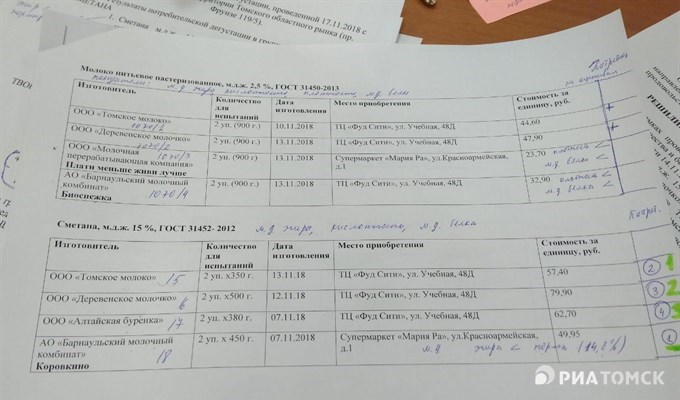 результаты потребительской дегустации, проведенной 17.11.2018 с
территории Томского областного рынка (пр.
Фрунзе 119/5).
1. Сметана
Молоко питьевое пастеризованное, м.д.ж. 2,5 %, ГОСТ 31450-2013
м.д. жира кислотность, плотность, м.д. белка
Изготовитель Количество для испытаний Дата изготовления Место приобретения Стоимость за единицу, руб.
ООО «Томское молоко» 1070/1 2 уп. (900 г.) 10.11.2018 ТЦ «Фуд Сити», ул. Учебная, 48Д 44,60
ООО «Деревенское молочко» 1070/2 2 уп. (900 г.) 13.11.2018 ТЦ «Фуд Сити», ул. Учебная, 48Д 47,90
ООО «Молочная перерабатывающая компания» 1070/3 2 уп. (900 г.) 13.11.2018 Супермаркет «Мария Ра», ул.Красноармейская, д.1 23,70 м.д. белка
Плати меньше живи лучше
АО «Барнаульский молочный комбинат» 1070/4 2 уп. (900 г.) 13.11.2018 ТЦ «Фуд Сити», ул. Учебная, 48Д 32,90 м.д. белка
Биоснежка
Сметана, м.д.ж. 15 %, ГОСТ 31452- 2012 м.д. жира, кислотность, м.д. белка
Изготовитель Количество для испытаний Дата изготовления Место приобретения Стоимость за единицу, руб.
ООО «Томское молоко» 15 2 уп. х350 г. 13.11.18 ТЦ «Фуд Сити», ул. Учебная, 48Д 57,40 2 1
ООО «Деревенское молочко» 6 2 уп. х500 г. 12.11.18 ТЦ «Фуд Сити», ул. Учебная, 48Д 79,90 3 2
ООО «Алтайская буренка» 17 2 уп. х380 г. 07.11.18 ТЦ «Фуд Сити», ул. Учебная, 48Д 62,70 4 3
АО «Барнаульский молочный комбинат» 18 2 уп. х 450 г. 07.11.2018 Супермаркет «Мария Ра», ул.Красноармейская, д.1 49,95 1
Коровкино м.д. жира < нормы (14,2%)
РИАТОМСК